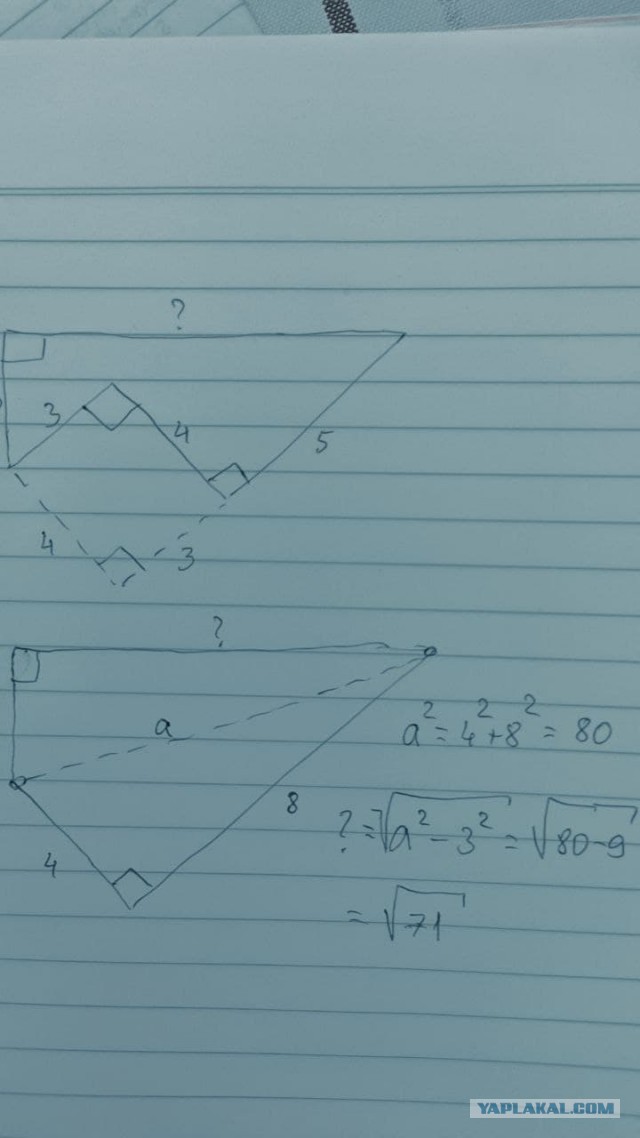 ?
3
4
5
4
3
?
a
a² = 4² + 8² = 80
8
? = √a² - 3² = √80-9
4
= √71
YAPLAKAL.COM